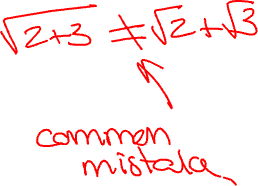 √2+3 ≠ √2+√3
common
mistake